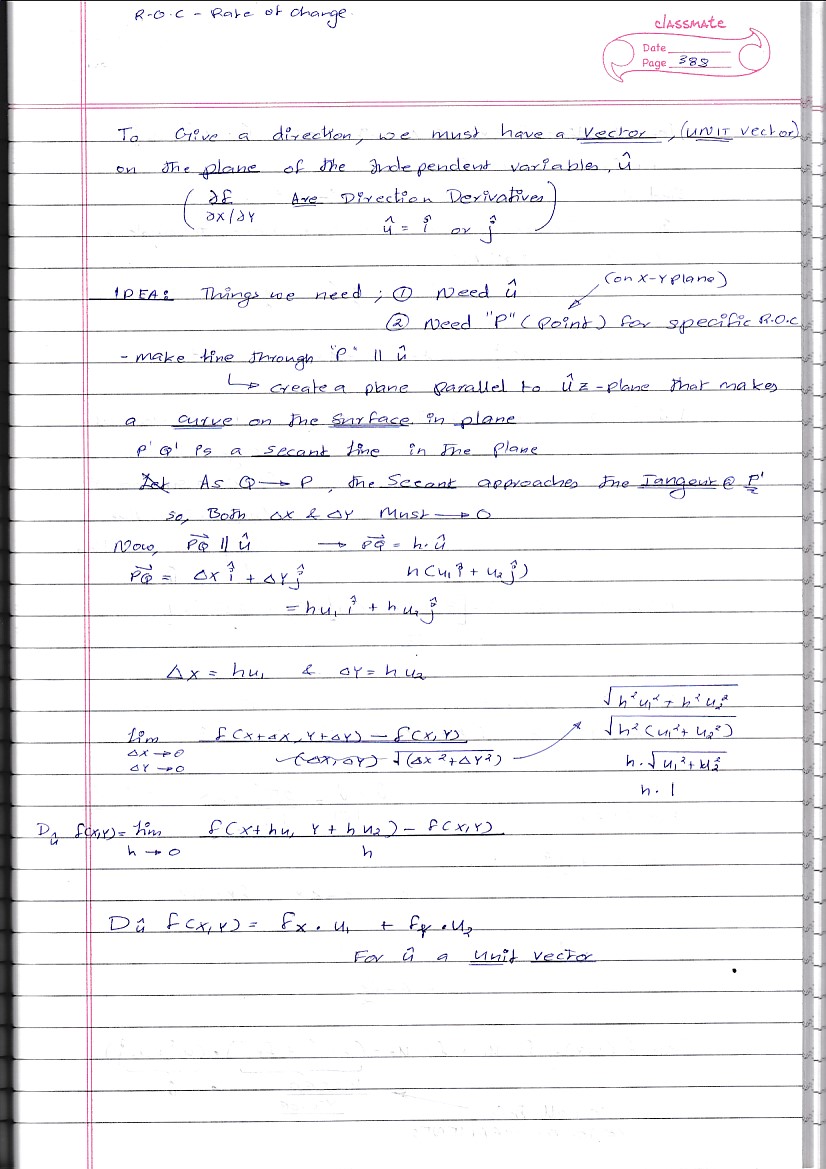 R.O.C - Rate of Change.
classmate
Date
Page 388
To Give a direction, we must have a Vector, (UNIT vector)
on the plane of the Independent variables, û
( ∂f/∂x/∂y Are Direction Derivatives
û = î or ĵ )
IDEA: Things we need ; ① Need û (on X-Y plane)
② Need "P" (Point) for specific R.O.C
- make line through "P" || û
↳ create a plane parallel to ûz-plane that makes
a curve on the surface in plane
P'Q' is a secant line in the Plane
As Q → P, the Secant approaches the Tangent @ P'
so, Both Δx & Δy Must → 0
Now, PQ⃗ || û → PQ⃗ = h·û
PQ⃗ = Δx î + Δy ĵ h(u₁î + u₂ĵ)
= hu₁ î + hu₂ ĵ
Δx = hu₁ & Δy = hu₂
√h²u₁² + h²u₂²
lim f(x+Δx, y+Δy) - f(x,y) √h²(u₁²+u₂²)
Δx→0 (Δx,Δy) √(Δx²+Δy²) h·√u₁²+u₂²
Δy→0
h·1
Dû f(x,y) = lim f(x+hu₁, y+hu₂) - f(x,y)
h→0 h
Dû f(x,y) = fx · u₁ + fy · u₂
For û a unit vector